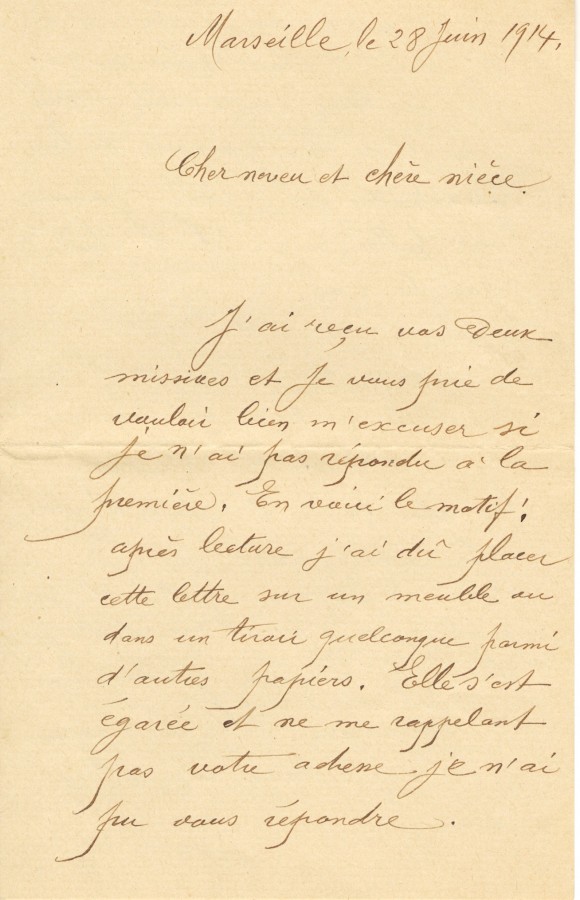 Marseille, le 28 Juin 1914.
Cher neveu et chère nièce.
J'ai reçu vos deux
missives et je vous prie de
vouloir bien m'excuser si
je n'ai pas répondu à la
première. En voici le motif:
après lecture j'ai dû placer
cette lettre sur un meuble ou
dans un tiroir quelconque parmi
d'autres papiers. Elle s'est
égarée et ne me rappelant
pas votre adresse je n'ai
pu vous répondre.